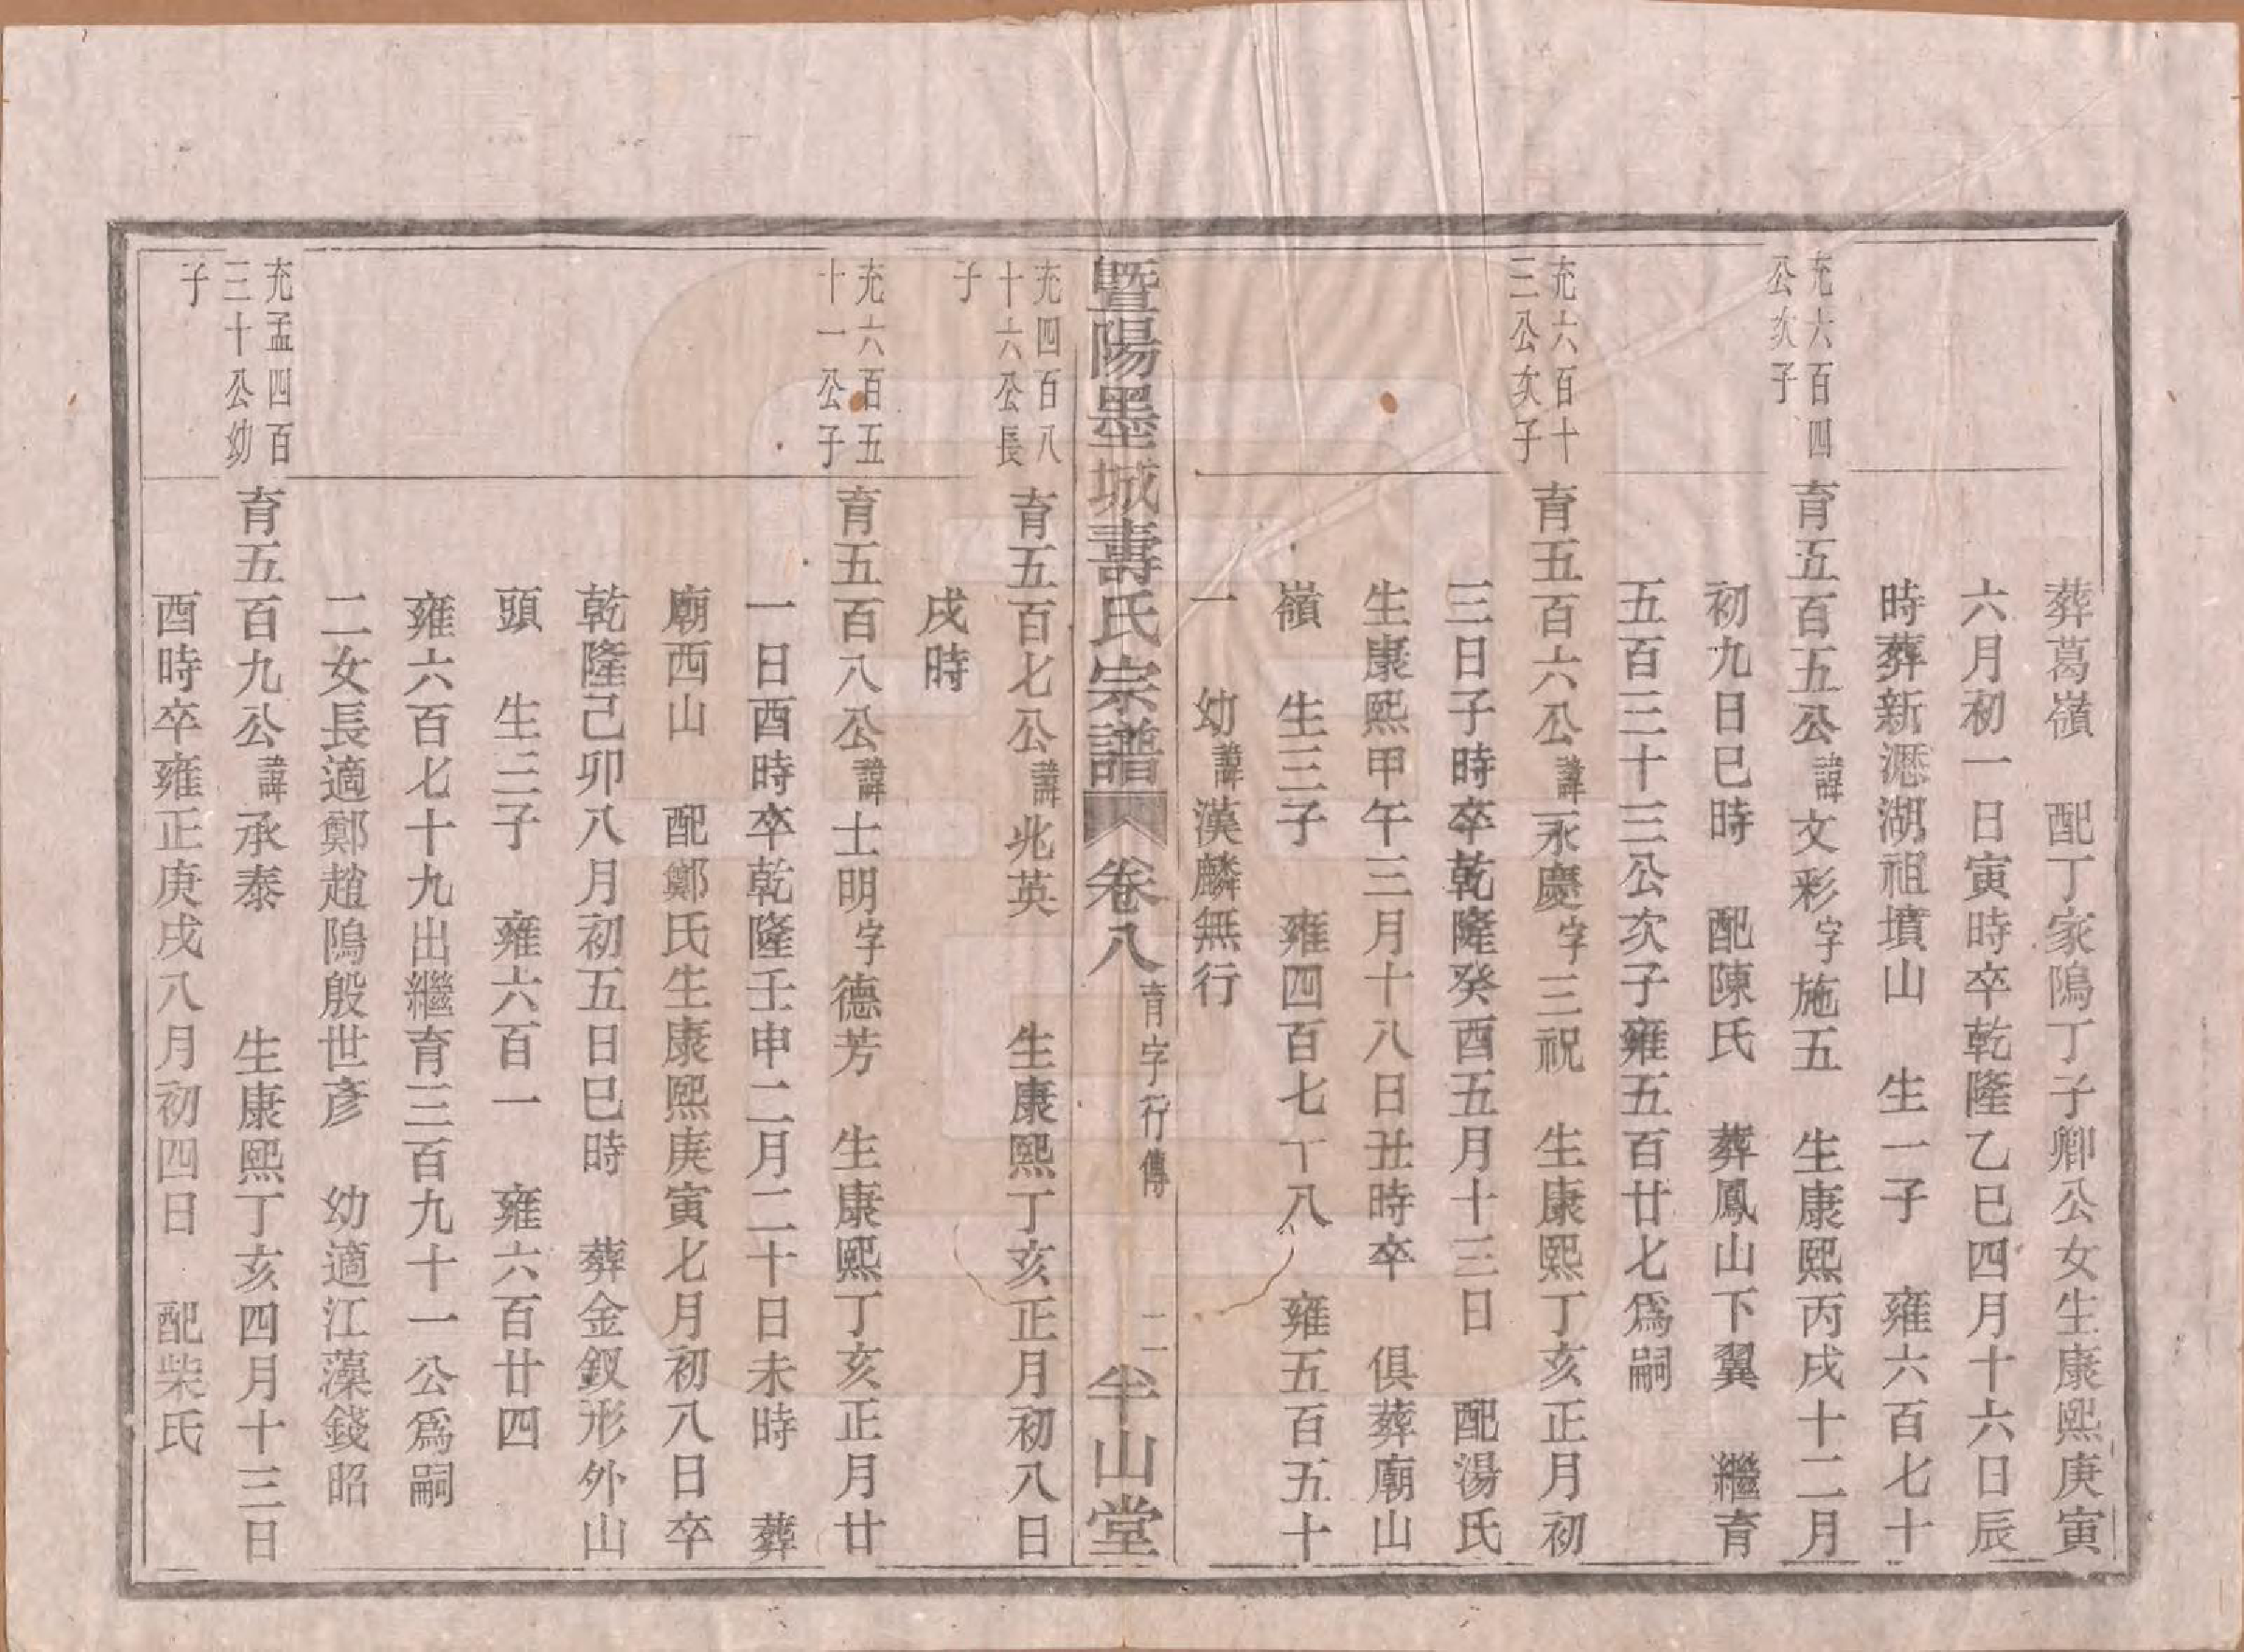 葬葛嶺　配丁家隖丁子卿公女生康熙庚寅
六月初一日寅時卒乾隆乙巳四月十六日辰
時葬新濹湖祖墳山　生一子　雍六百七十
充六百四
公次子
育五百五公諱文彩字施五　生康熙丙戌十二月
初九日巳時　配陳氏　葬鳳山下翼　繼育
五百三十三公次子雍五百廿七爲嗣
充六百十
三公次子
育五百六公諱永慶字三祝　生康熙丁亥正月初
三日子時卒乾隆癸酉五月十三日　配湯氏
生康熙甲午三月十八日丑時卒　俱葬廟山
嶺　生三子　雍四百七十八　雍五百五十
一　幼諱漢麟無行
暨陽墨城壽氏宗譜　卷八　育字行傳　二　半山堂
充四百八
十六公長
子
育五百七公諱兆英　生康熙丁亥正月初八日
戌時
充六百五
十一公子
育五百八公諱士明字德芳　生康熙丁亥正月廿
一日酉時卒乾隆壬申二月二十日未時　葬
廟西山　配鄭氏生康熙庚寅七月初八日卒
乾隆己卯八月初五日巳時　葬金釵形外山
頭　生三子　雍六百一　雍六百廿四
雍六百七十九出繼育三百九十一公爲嗣
二女長適鄭趙隖殷世彥　幼適江藻錢昭
充孟四百
三十公幼
子
育五百九公諱承泰　生康熙丁亥四月十三日
酉時卒雍正庚戌八月初四日　配柴氏